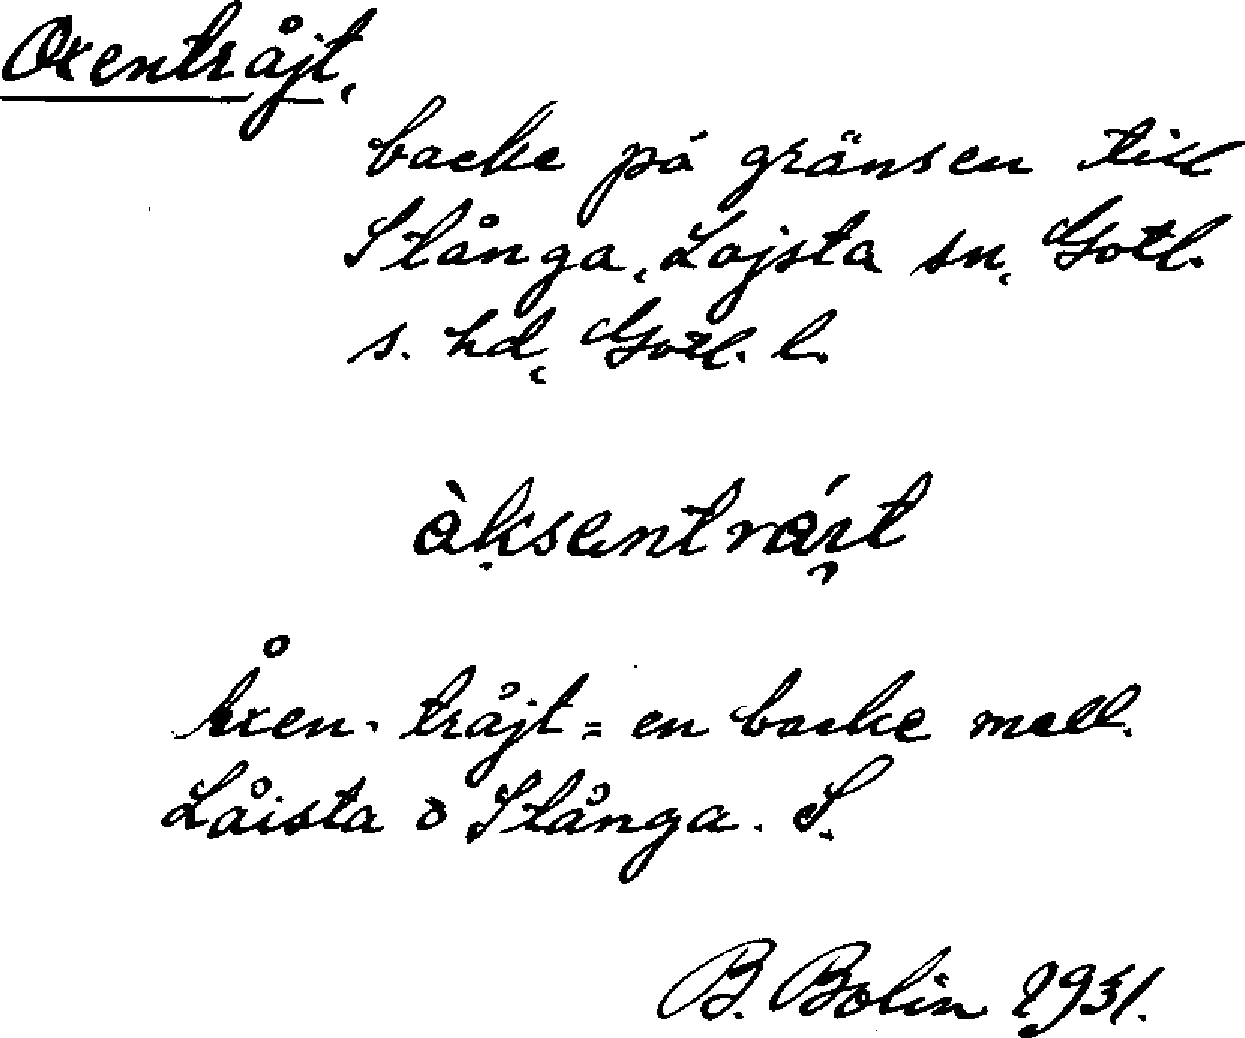 Oxentråjt,
backe på gränsen till
Stånga, Lojsta sn, Gotl.
s. hd, Gotl. l.
Åxen-tråjt = en backe mell.
Låista o Stånga. S.
B. Bolin 1931.